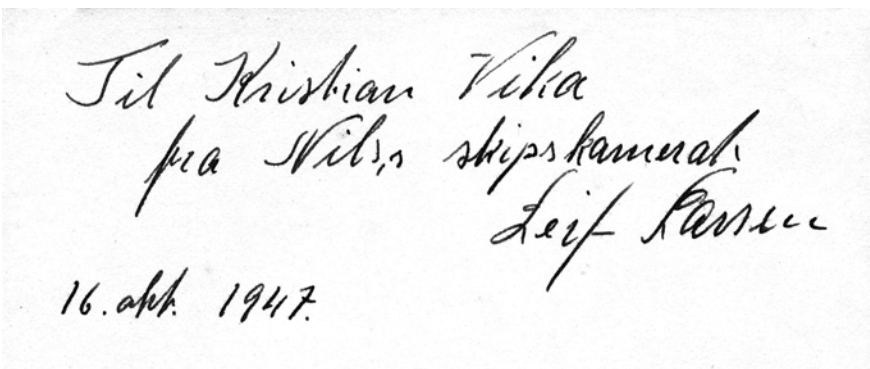 Til Kristian Vika
fra Nils's skipskamerat
Leif Larsen
16. okt. 1947.